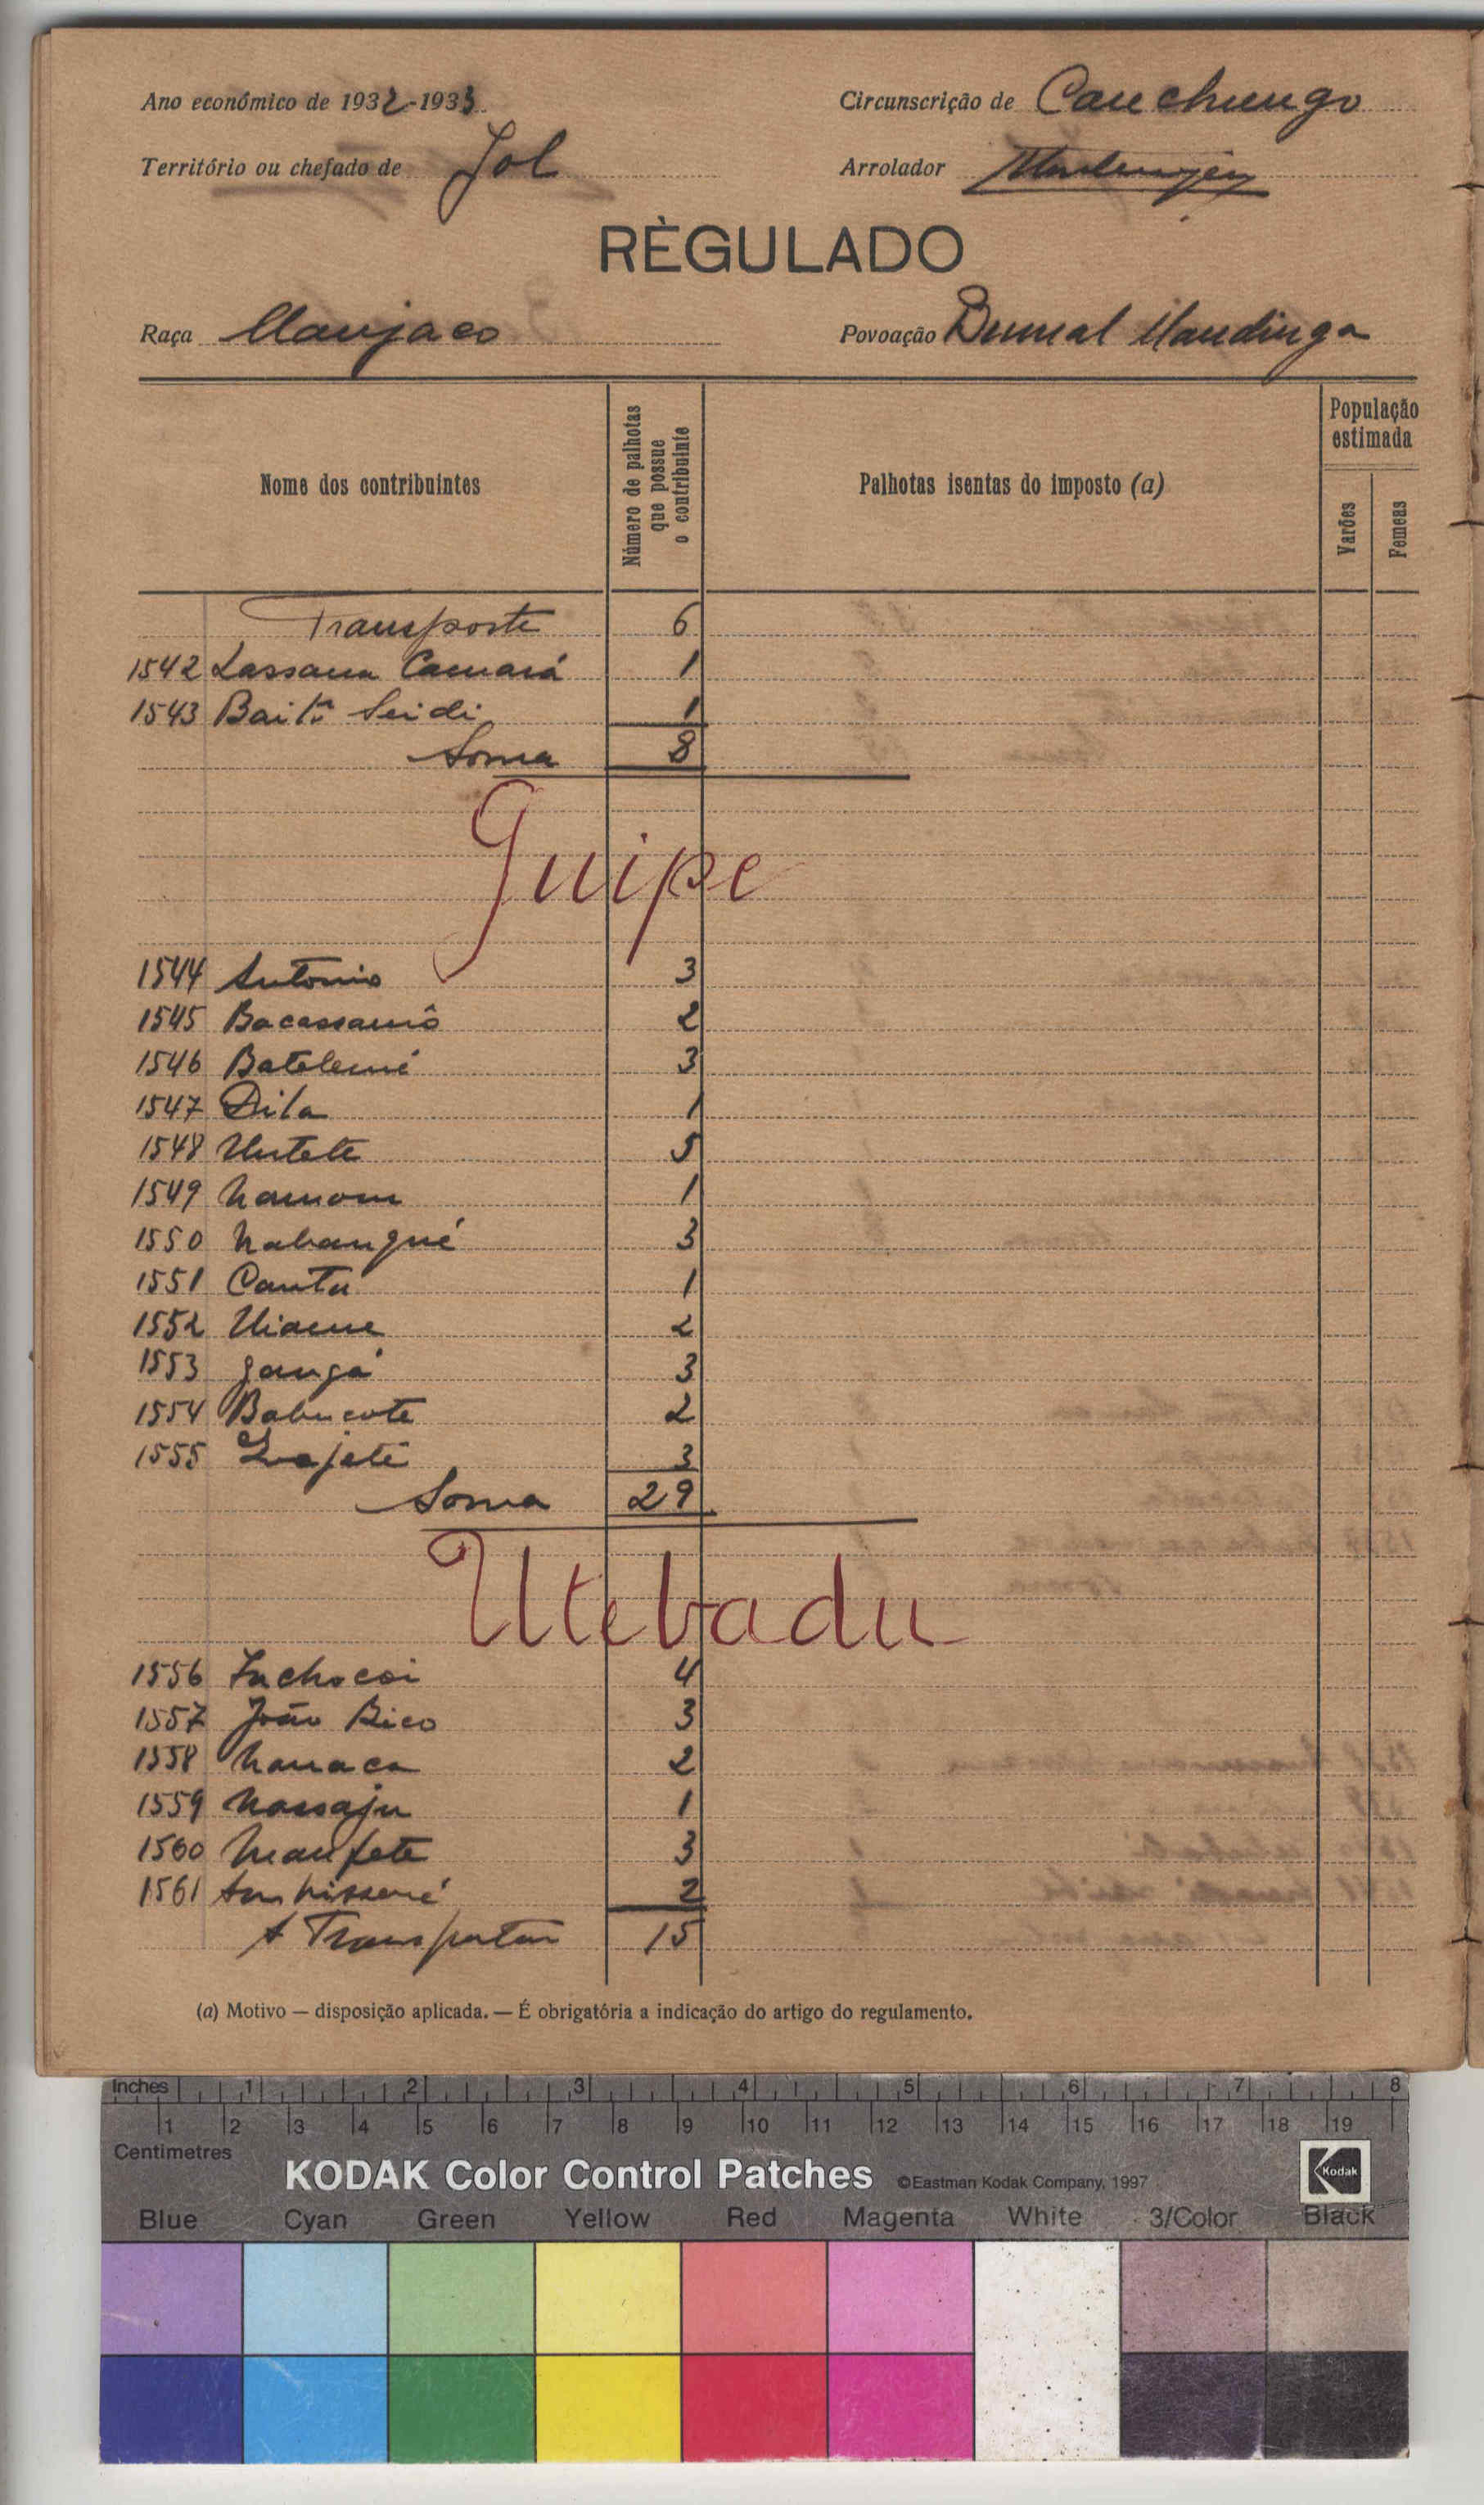 Ano económico de 1932-1933
Circunscrição de Canchungo
Território ou chefado de Jol
Arrolador
RÈGULADO
Raça Manjaco
Povoação Bumal Mandinga
Nome dos contribuintes
Número de palhotas que possue o contribuinte
Palhotas isentas do imposto (a)
População estimada
Varões
Femeas
Transporte 6
1542 Lassana Camará 1
1543 Seidi 1
Soma 8
Guipe
1544 Antonio 3
1545 Bacassamô 2
1546 Batelemé 3
1547 Dila 1
1548 Untete 5
1549 Namom 1
1550 Nabangué 3
1551 Cantu 1
1552 Uiame 2
1553 Jangá 3
1554 Babucote 2
1555 3
Soma 29
Utebadu
1556 4
1557 João Bico 3
1558 Nanaca 2
1559 Nassaju 1
1560 Manfete 3
1561 2
A Transportar 15
(a) Motivo — disposição aplicada. — É obrigatória a indicação do artigo do regulamento.
Inches 1 2 3 4 5 6 7 8
1 2 3 4 5 6 7 8 9 10 11 12 13 14 15 16 17 18 19
Centimetres
KODAK Color Control Patches ©Eastman Kodak Company, 1997 Kodak
Blue Cyan Green Yellow Red Magenta White 3/Color Black